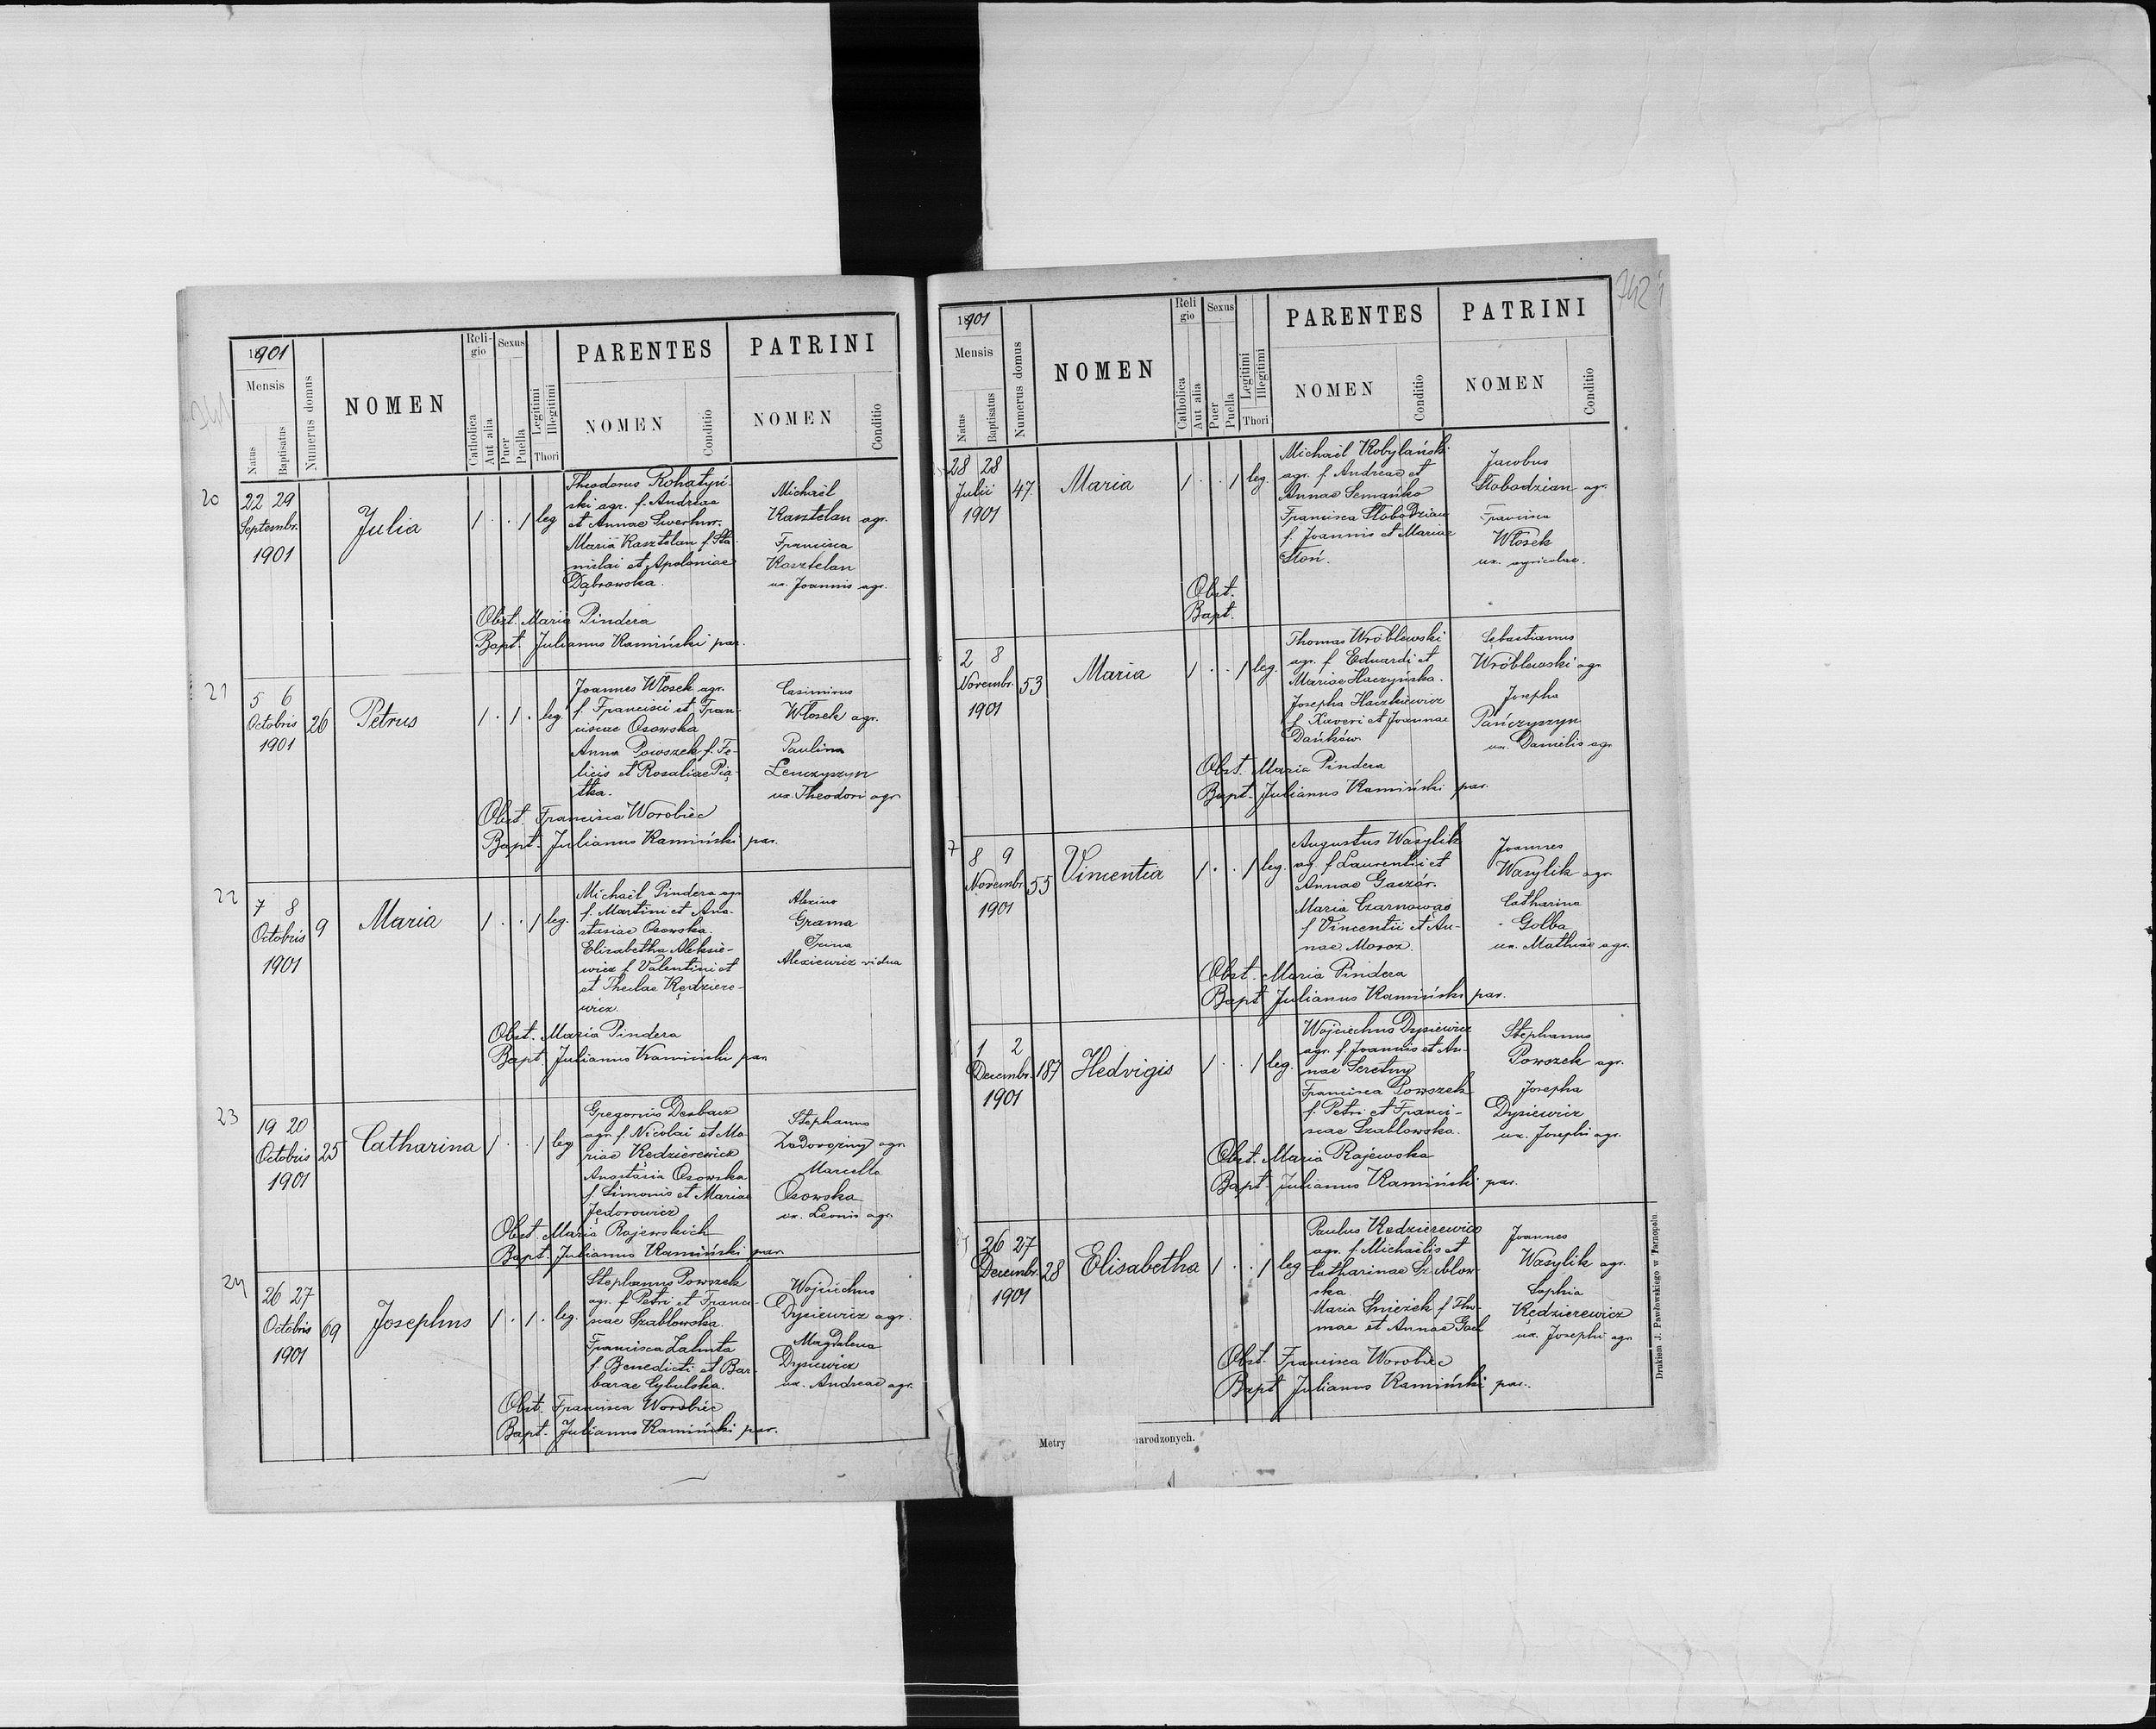 1901
Mensis
Natus
Baptisatus
Numerus domus
NOMEN
Reli-
gio
Catholica
Aut alia
Sexus
Puer
Puella
Legitimi
Illegitimi
Thori
PARENTES
NOMEN
Conditio
PATRINI
NOMEN
Conditio
20
22 29
Septembr.
1901
Julia
1 . . 1 leg
Theodorus Rohatyń-
ski agr. f. Andreae
et Annae Swerhun.
Maria Kasztelan f. Sta-
nislai et Apoloniae
Dąbrowska.
Michaël
Kasztelan agr.
Francisca
Kasztelan
ux. Joannis agr.
Obst. Maria Pindera
Bapt. Julianus Kamiński par.
21
5 6
Octobris
1901
26
Petrus
1 . 1 . leg
Joannes Włosek agr.
f. Francisci et Fran-
ciscae Osowska
Anna Powszek f. Fe-
licis et Rosaliae Pią-
tka.
Casimirus
Włosek agr.
Paulina
Lenczyszyn
ux. Theodori agr
Obst. Francisca Worobiec
Bapt. Julianus Kamiński par.
22
7 8
Octobris
1901
9
Maria
1 . . 1 leg.
Michaël Pindera agr
f. Martini et Ana-
stasiae Osowska.
Elisabetha Aleksie-
wicz f. Valentini et
et Theclae Kędziere-
wicz.
Alexius
Grama
Irina
Alexiewicz vidua
Obst. Maria Pindera
Bapt. Julianus Kamiński par
23
19 20
Octobris
1901
25
Catharina
1 . . 1 leg
Gregorius Derbacz
agr. f. Nicolai et Ma-
riae Kędzierewicz
Anastasia Osowska
f. Simonis et Mariae
Fedorowicz
Stephanus
Zadorozny agr.
Marcella
Osowska
ux. Leonis agr.
Obst. Maria Rajewskich
Bapt. Julianus Kamiński par
24
26 27
Octobris
1901
69
Josephus
1 . 1 . leg.
Stephanus Powszek
agr. f. Petri et Franci-
scae Szablowska.
Francisca Zaluta
f. Benedicti et Bar-
barae Cybulska.
Wojciechus
Dysiewicz agr.
Magdalena
Dysiewicz
ux. Andreae agr.
Obst. Francisca Worobiec
Bapt. Julianus Kamiński par.
742
1901
Mensis
Natus
Baptisatus
Numerus domus
NOMEN
Reli
gio
Catholica
Aut alia
Sexus
Puer
Puella
Legitimi
Illegitimi
Thori
PARENTES
NOMEN
Conditio
PATRINI
NOMEN
Conditio
28 28
Julii
1901
47
Maria
1 . . 1 leg.
Michaël Kobylański
agr. f. Andreae et
Annae Semańko
Francisca Slobodzian
f. Joannis et Mariae
Słoń.
Jacobus
Slobodzian agr.
Francisca
Włosek
ux. agricolae.
Obst.
Bapt.
2 8
Novembr.
1901
53
Maria
1 . . 1 leg.
Thomas Wróblewski
agr. f. Eduardi et
Mariae Haczyńska.
Josepha Haczkiewicz
f. Xaveri et Joannae
Dańków
Sebastianus
Wróblewski agr
Josepha
Pańczyszyn
ux. Danielis agr
Obst. Maria Pindera
Bapt. Julianus Kamiński par.
7
8 9
Novembr.
1901
55
Vincentia
1 . . 1 leg.
Augustus Wasylik
ag. f. Laurentii et
Annae Gaczór.
Maria Czarnowąs
f Vincentii et An-
nae Moroz.
Joannes
Wasylik agr.
Catharina
Golba
ux. Mathiae agr.
Obst. Maria Pindera
Bapt Julianus Kamiński par.
1 2
Decembr.
1901
187
Hedvigis
1 . . 1 leg.
Wojciechus Dysiewicz
agr. f. Joannis et An-
nae Seretny
Francisca Powszek
f. Petri et Franci-
scae Szablowska.
Stephanus
Powszek agr.
Josepha
Dysiewicz
ux. Josephi agr.
Obst. Maria Rajewska
Bapt. Julianus Kamiński par.
26 27
Decembr.
1901
28
Elisabetha
1 . . 1 leg
Paulus Kędzierewicz
agr. f. Michaëlis et
Catharinae Szablow-
ska.
Maria Śnieżek f Tho-
mae et Annae Gac
Joannes
Wasylik agr.
Sophia
Kędzierewicz
ux. Josephi agr
Obst. Francisca Worobiec
Bapt Julianus Kamiński par.
Metry
narodzonych.
Drukiem J. Pawłowskiego w Tarnopolu.